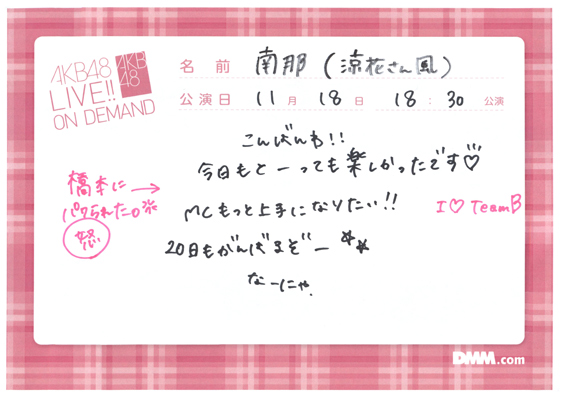 AKB48
LIVE!!
ON DEMAND
AKB
48
名前 南那 (涼花さん風)
公演日 11月 18日 18:30 公演
こんばんわ!!
今日もとーっても楽しかったです♡
橋本に →
パクられた。※
怒
MCもっと上手になりたい!!
I♡ TeamB
20日もがんばるぞー ☆☆
なーにゃ.
DMM.com